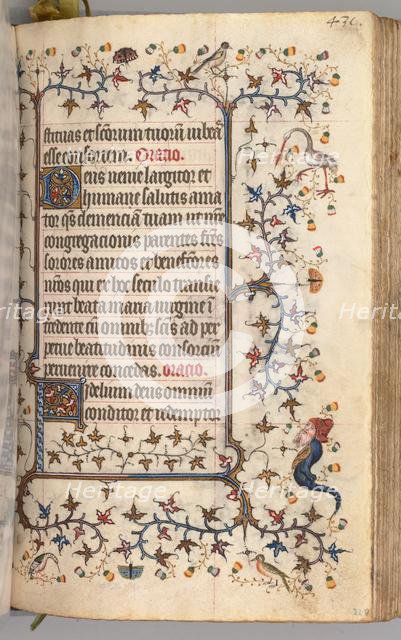 430.
stituas et scorum tuorū iubea
esse consortem. Oratio.
Deus uenie largitor et
humane salutis ama
tor q̄s clemenciam tuam ut nr̄e
congregacionis parentes fr̄es
sorores amicos et benefc̄ores
nr̄os qui ex hoc seculo transie
runt beata maria uirgine ī
tcedente cū omnib; scīs ad per
petue beatitudinis consorciū
peruenire concedas. oratio.
Fidelium deus omniū
conditor et redemptor
Heritage